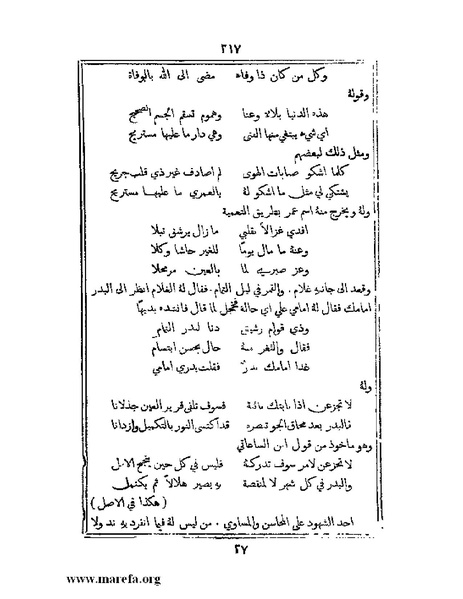 ٢١٧
وكل من كان ذا وفاء مضى الى الله بالوفاة
وقوله
هذه الدنيا بلاء وعنا وهموم تسقم الجسم الصحيح
اي شيء يبتغي منها الفتى وهي دار ما عليها مستريح
ومثل ذلك لبعضهم
كلما اشكو صبابات الهوى لم اصادف غير ذي قلب جريح
يشتكي لي مثل ما اشكو له يا لعمري ما عليها مستريح
وله ويخرج منه اسم عمر بطريق التعمية
افدي غزالاً بقلبي ما زال يرشق نبلا
وعنه ما مال يوماً للغير حاشا وكلا
وعز صبري لما بالعين مر محلا
وقعد الى جانبه غلام . والقمر في ليل التمام . فقال له الغلام انظر الى البدر
امامك فقال له امامي علي اي حالة فخجل لما قال فانشده بديهاً
وذي قوام رشيق دنا لبدر التمام
فقال والثغر منه حال بحسن ابتسام
غدا امامك بدرٌ فقلت بدري امامي
وله
لا تجزعن اذا نابتك نائبة فسوف تلقى قرير العين جذلانا
فالبدر بعد محاق الجو تبصره قد اكتسى النور بالتكميل وازدانا
وهو ماخوذ من قول ابن الساعاتي
لا تجزعن لامر سوف تدركه فليس في كل حين ينجح الامل
والبدر في كل شهر لا لمنقصة به يصير هلالاً ثم يكتمل
(هكذا في الاصل)
احد الشهود على المحاسن والمساوي . من ليس له فيما انفرد به ند ولا
٢٧
www.marefa.org